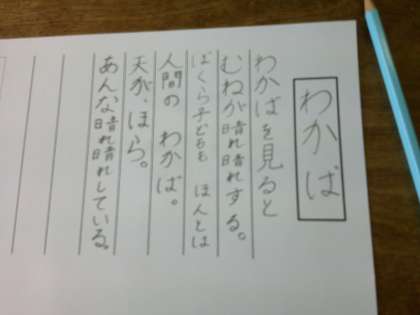 わかば
わかばを見ると
むねが晴れ晴れする。
ぼくら子どもも ほんとは
人間の わかば。
天が、ほら。
あんな晴れ晴れしている。